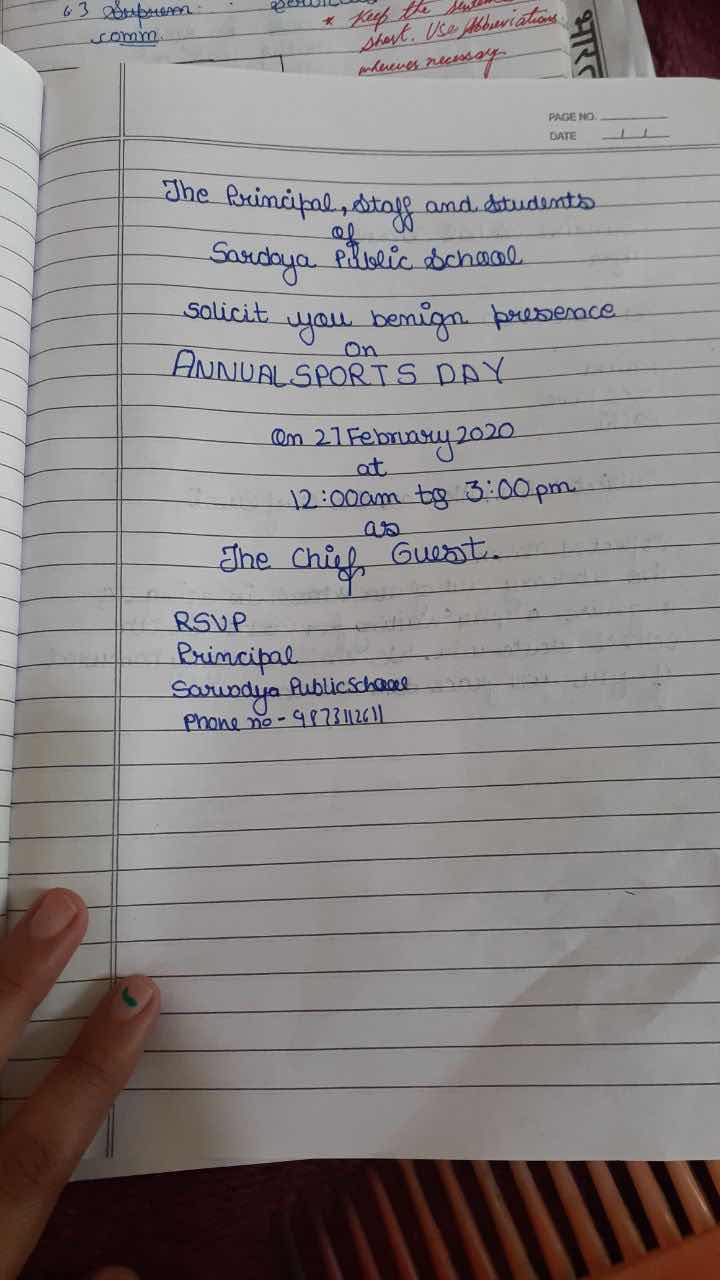 63 Suprem.
comm.
* Keep the
short. Use Abbreviations
wherever necessary.
भारत
PAGE NO.
DATE
The Principal, Staff and Students
of
Sardoya Public School
solicit you benign presence
on
ANNUAL SPORTS DAY
On 27 February 2020
at
12:00am to 3:00pm
as
The Chief Guest.
RSVP
Principal
Sarvodya Public School
Phone no - 9873112611